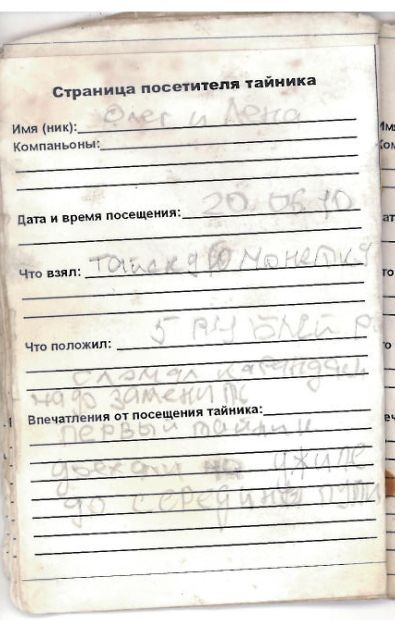 Страница посетителя тайника
Имя (ник): Олег и Лена
Компаньоны:
Дата и время посещения: 20.06.10
Что взял: монетку
Что положил: 5 рублей
сломал карандаш
надо заменить
Впечатления от посещения тайника:
первый тайник
доехали на джипе
до середины пути